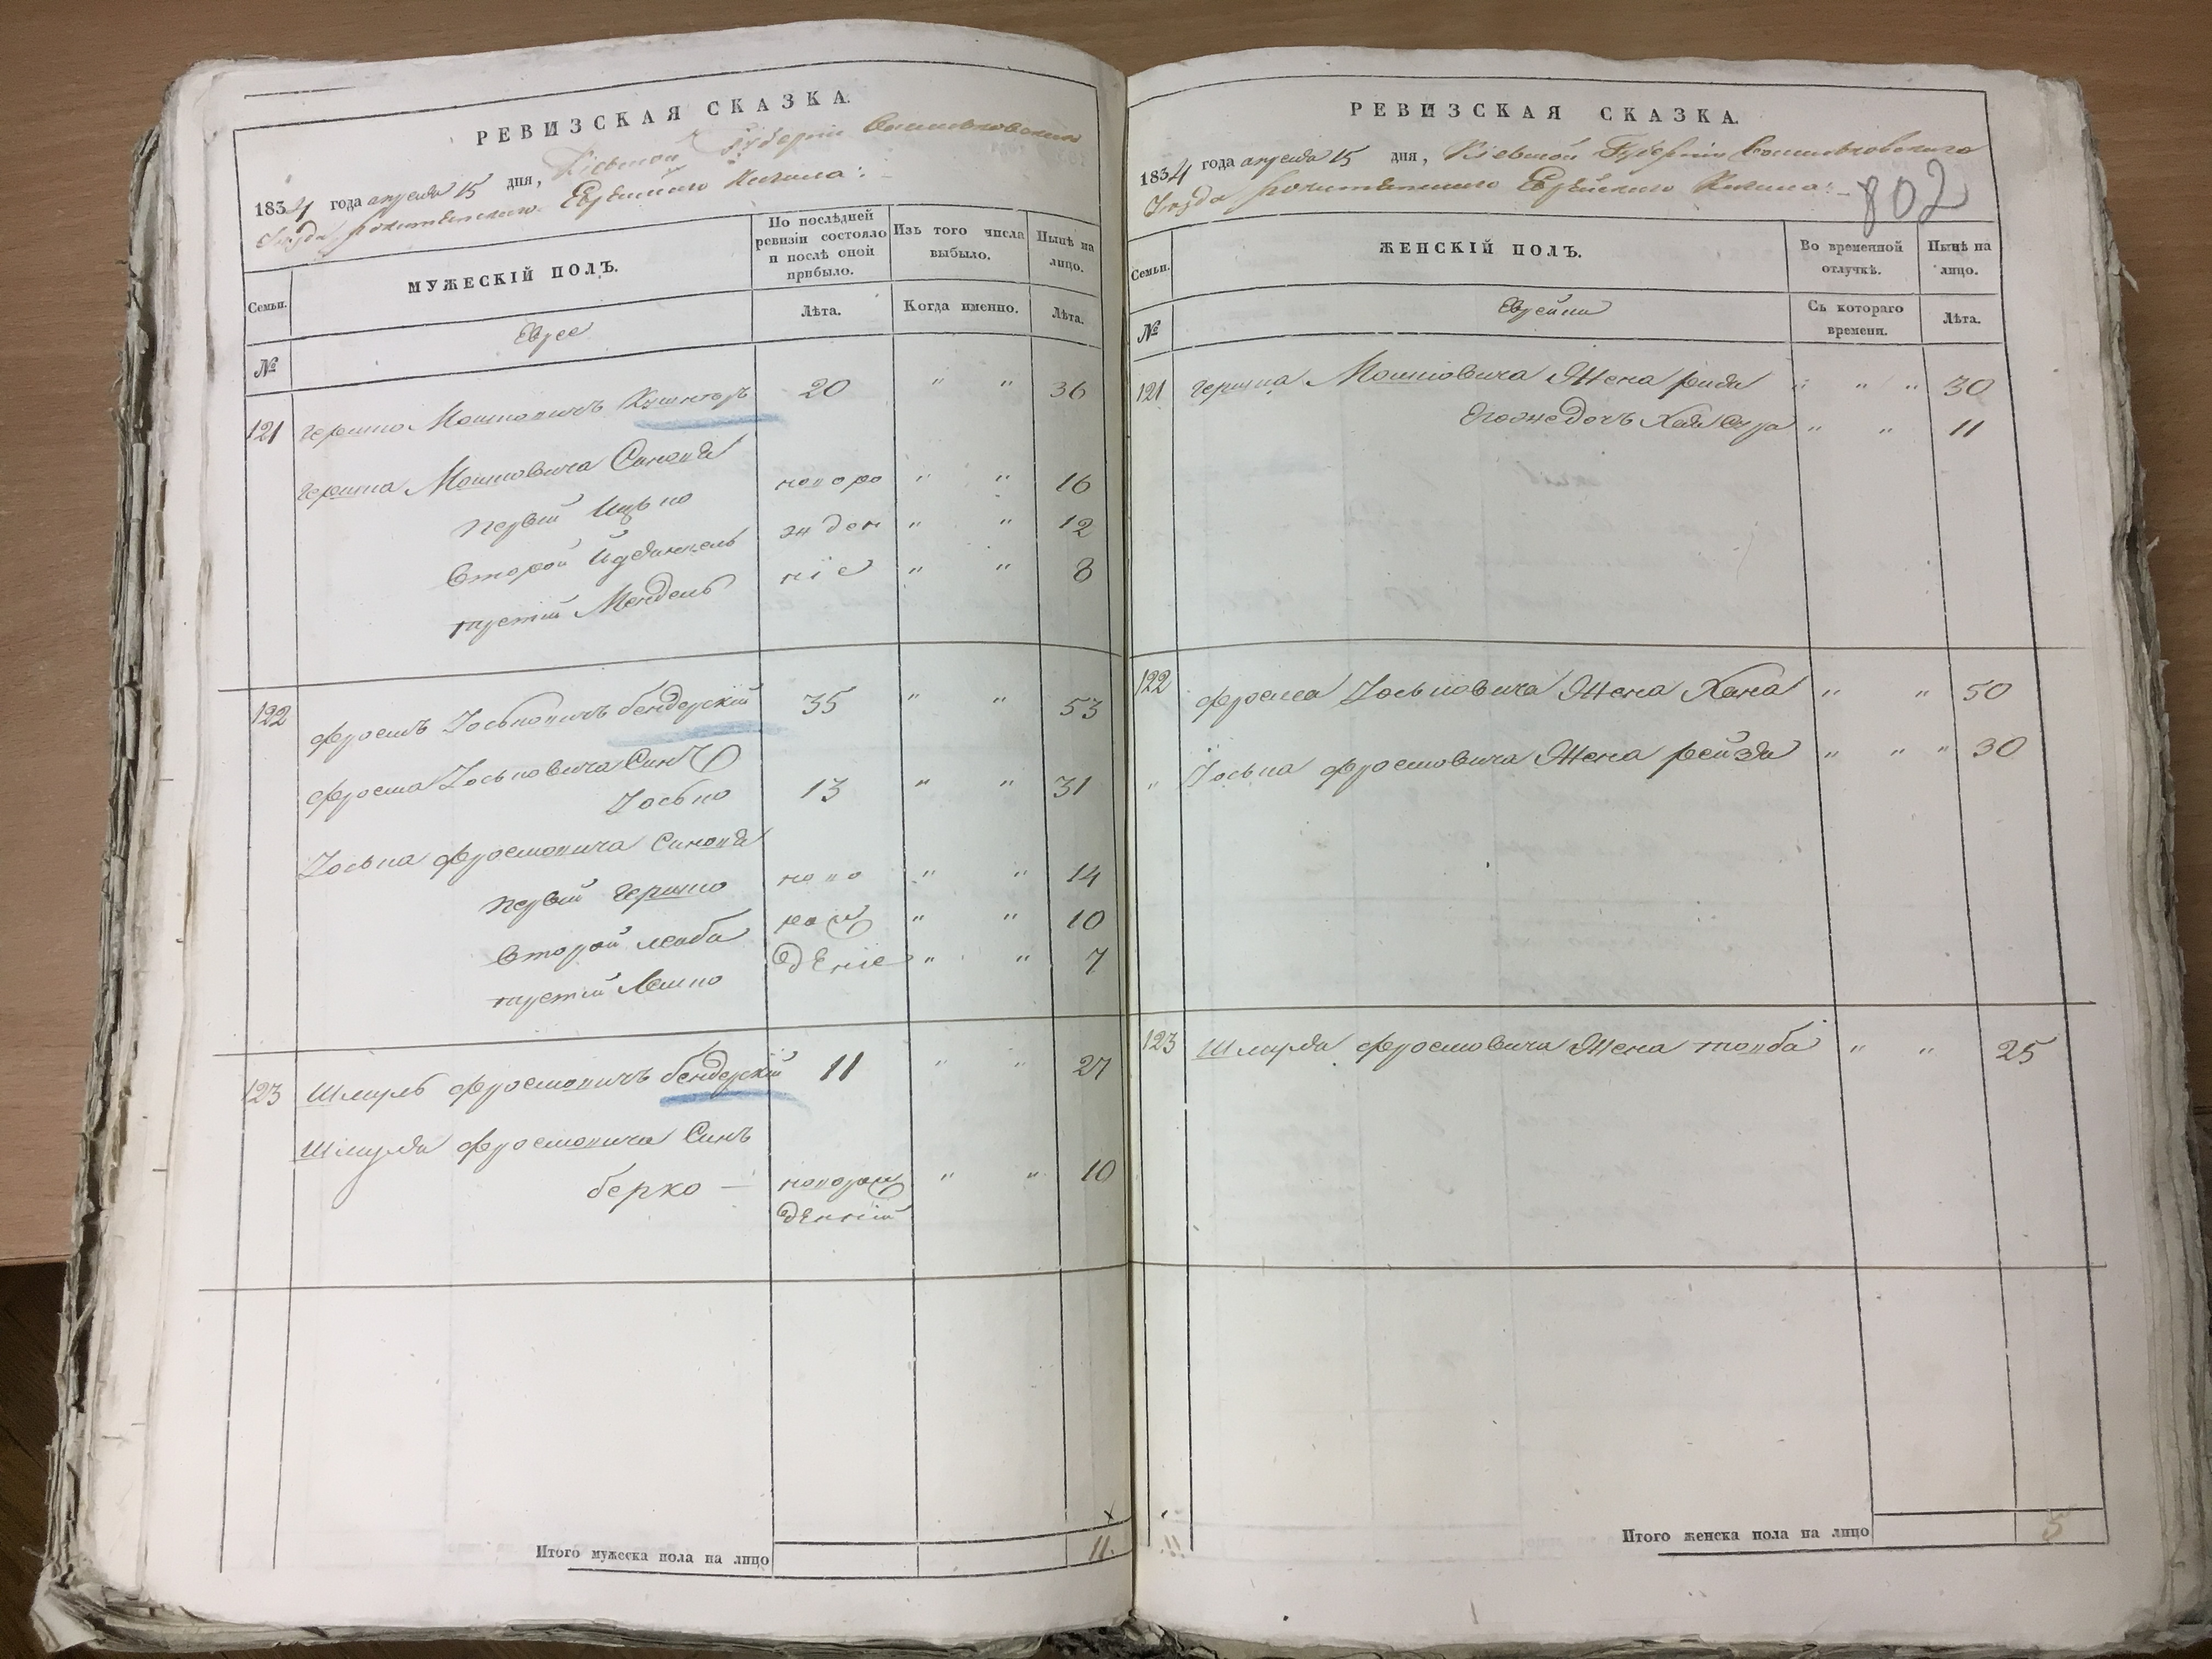 РЕВИЗСКАЯ СКАЗКА.
1834 года апреля 15 дня, Кіевской Губерніи
Еврейского Кагала:
Семьи.
МУЖЕСКІЙ ПОЛЪ.
По послѣдней ревизіи состояло и послѣ оной прибыло.
Изъ того числа выбыло.
Нынѣ на лицо.
№
Еврее
Лѣта.
Когда именно.
Лѣта.
121 Гершко Мошковичъ 20 " " 36
Гершка Мошковича Синовя
первый Ицько новоро " " 16
Второй жден " " 12
третій Мендель ніе " " 8
122 Фроимъ Іоськовичъ бендерскій 35 " " 53
Фроима Іоськовича Синъ
Іосько 13 " " 31
Іоська Фроимовича Синовя
первый Гершко ново " " 14
Второй лейба рож " " 10
третій деніе " " 7
123 Шмуль Фроимовичъ бендерскій 11 " " 27
Шмуля Фроимовича Синъ
берко — новорож " " 10
деній
Итого мужеска пола на лицо 11.
РЕВИЗСКАЯ СКАЗКА.
1834 года апреля 15 дня, Кіевской Губерніи
Еврейского Кагала:
802
Семьи.
ЖЕНСКІЙ ПОЛЪ.
Во временной отлучкѣ.
Нынѣ на лицо.
№
Еврейки
Съ котораго времени.
Лѣта.
121 Гершка Мошковича Жена " " " 30
Егоже Дочь Хая Сура " " 11
122 Фроима Іоськовича Жена Хана " " 50
" Іоська Фроимовича Жена рейзя " " " 30
123 Шмуля Фроимовича Жена товба " " 25
Итого женска пола на лицо 5